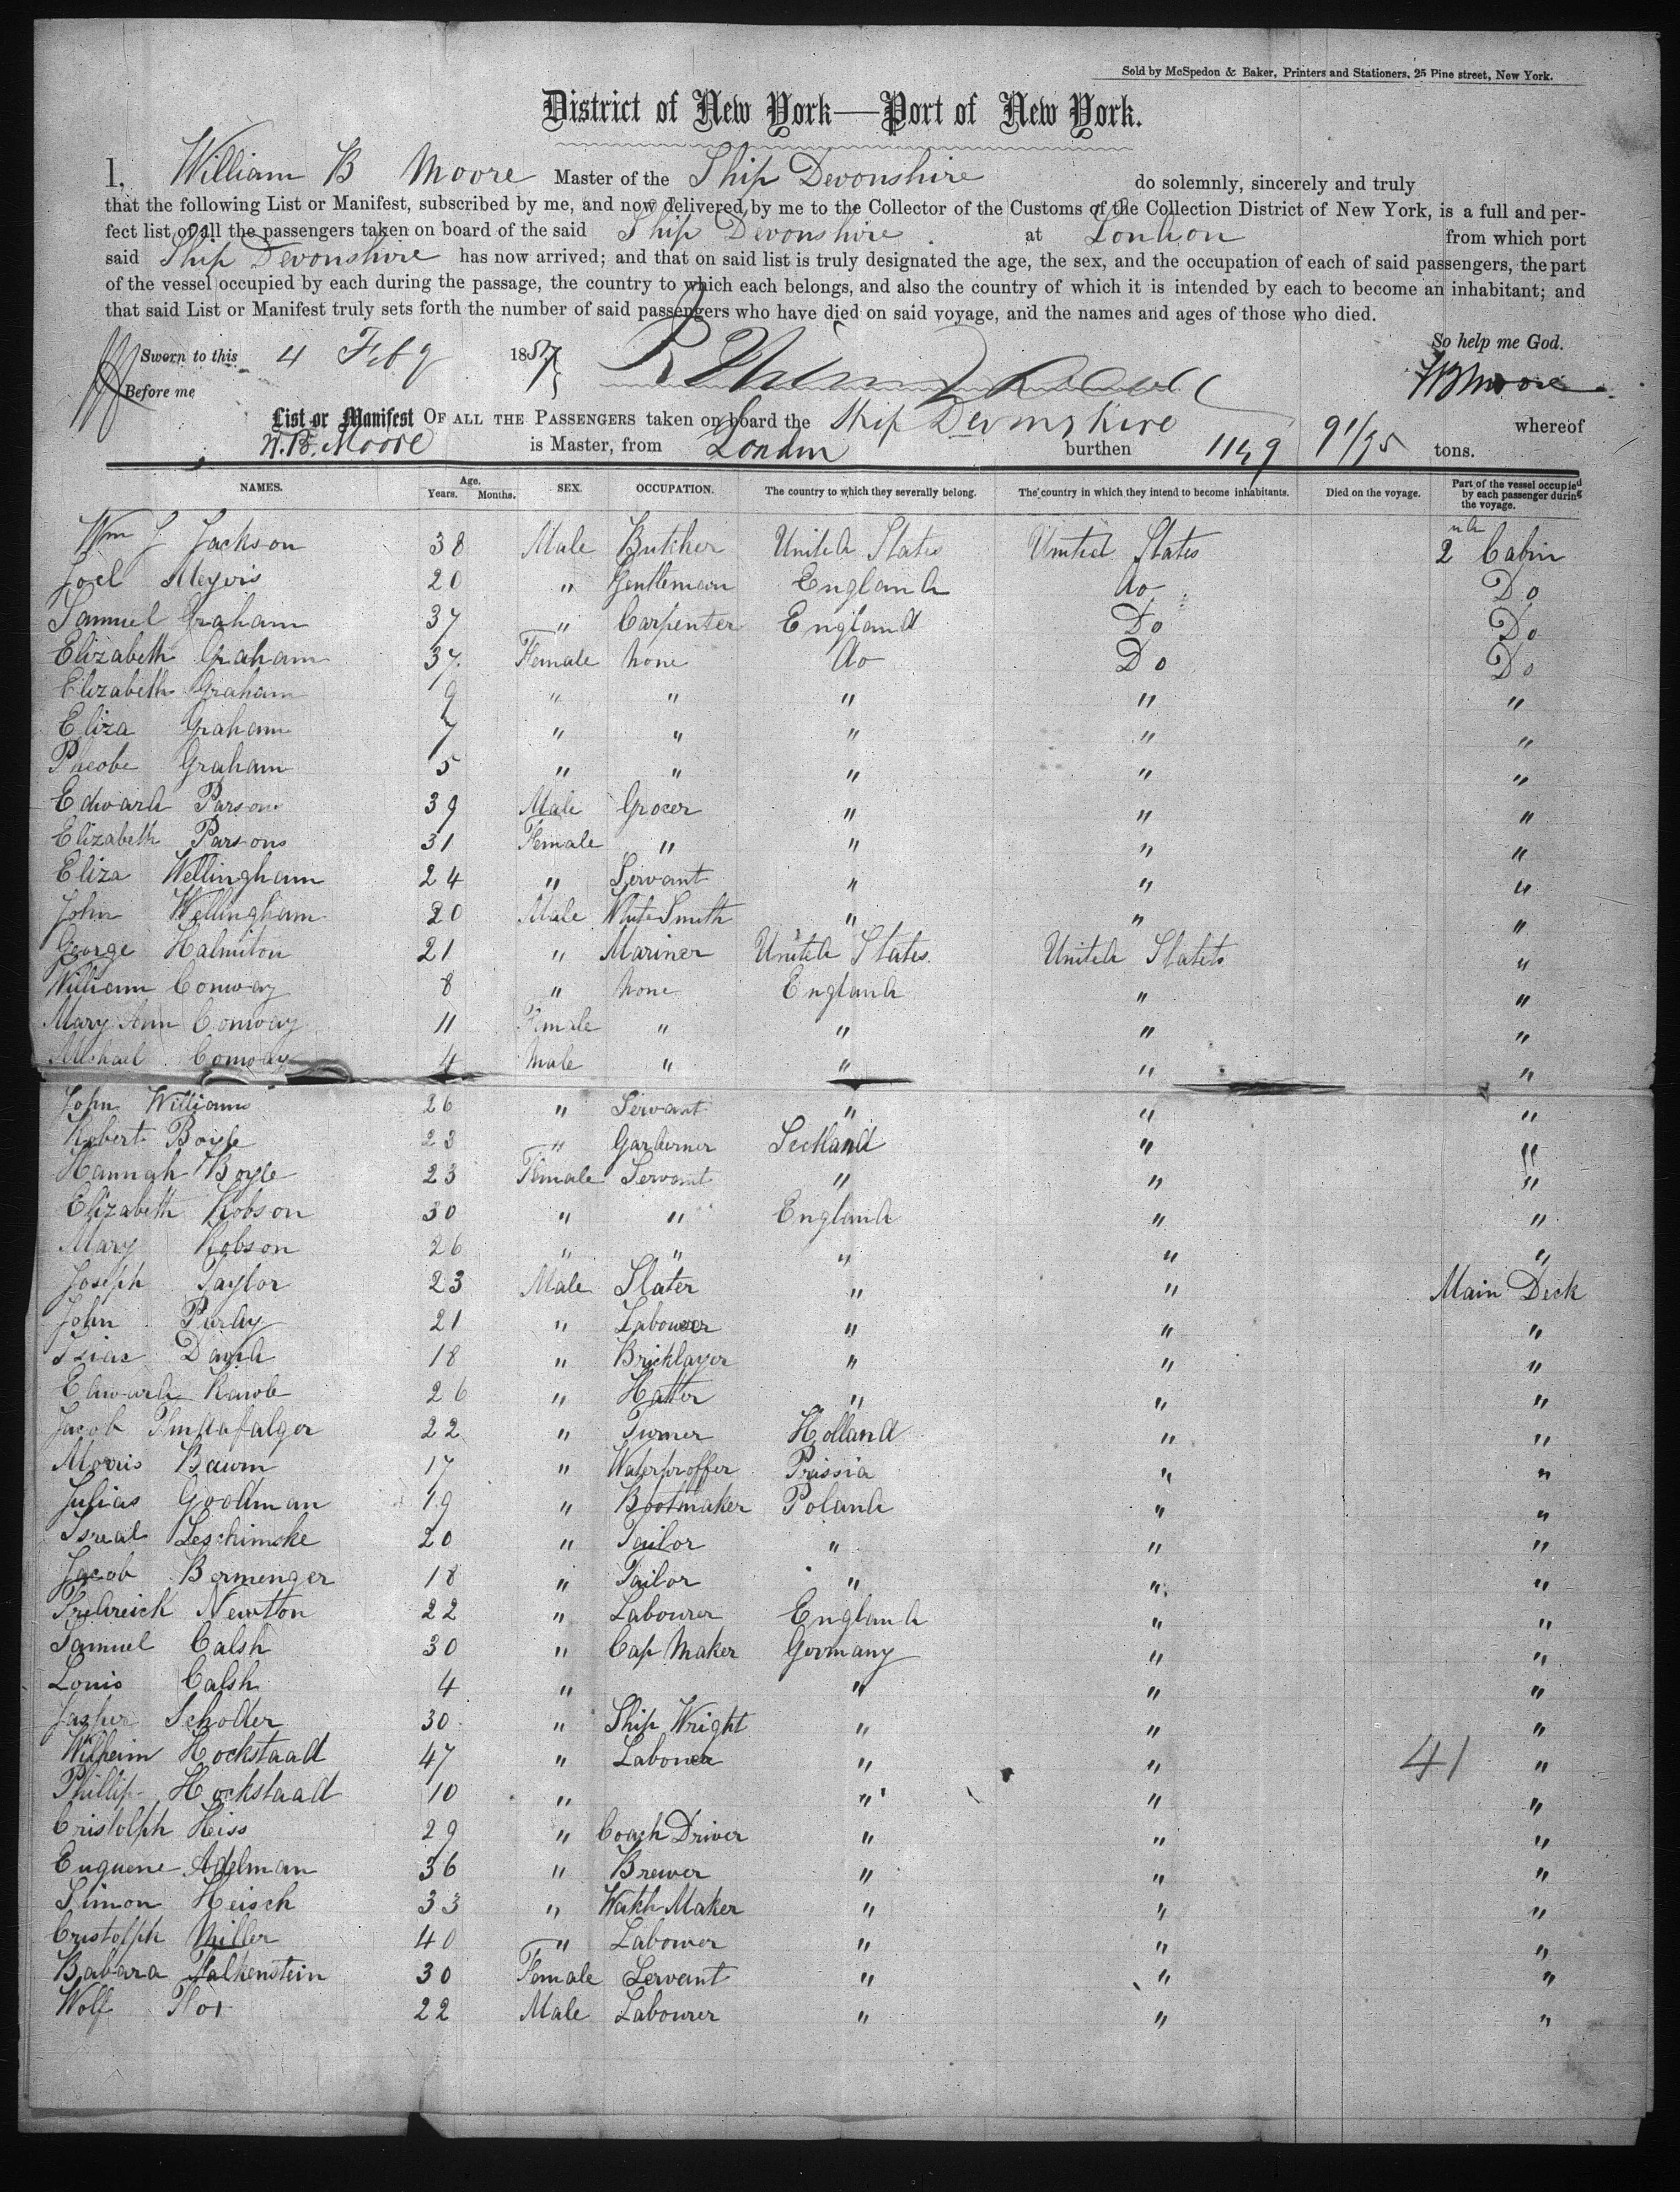 Sold by McSpedon & Baker, Printers and Stationers, 25 Pine street, New York.
District of New York—Port of New York.
I, William B Moore Master of the Ship Devonshire do solemnly, sincerely and truly
that the following List or Manifest, subscribed by me, and now delivered by me to the Collector of the Customs of the Collection District of New York, is a full and per-
fect list of all the passengers taken on board of the said Ship Devonshire at London from which port
said Ship Devonshire has now arrived; and that on said list is truly designated the age, the sex, and the occupation of each of said passengers, the part
of the vessel occupied by each during the passage, the country to which each belongs, and also the country of which it is intended by each to become an inhabitant; and
that said List or Manifest truly sets forth the number of said passengers who have died on said voyage, and the names and ages of those who died.
So help me God.
Sworn to this 4 Feby 1857
WB Moore
Before me
List or Manifest OF ALL THE PASSENGERS taken on board the Ship Devonshire whereof
W. B. Moore is Master, from London burthen 1149 91/95 tons.
NAMES. Age. Years. Months. SEX. OCCUPATION. The country to which they severally belong. The country in which they intend to become inhabitants. Died on the voyage. Part of the vessel occupied by each passenger during the voyage.
Wm J Jackson 38 Male Butcher United States United States 2nd Cabin
Joel Meyers 20 " Gentleman England do Do
Samuel Graham 37 " Carpenter England Do Do
Elizabeth Graham 37 Female none do Do Do
Elizabeth Graham 9 " " " " "
Eliza Graham 7 " " " " "
Pheobe Graham 5 " " " " "
Edward Parsons 39 Male Grocer " " "
Elizabeth Parsons 31 Female " " " "
Eliza Wellingham 24 " Servant " " "
John Wellingham 20 Male White Smith " " "
George Halmiton 21 " Mariner United States United States "
William Conway 8 " none England " "
Mary Ann Conway 11 Female " " " "
Michael Conway 4 Male " " " "
John Williams 26 " Servant " " "
Robert Boyle 23 " Garderner Scotland " "
Hannah Boyle 23 Female Servant " " "
Elizabeth Robson 30 " " England " "
Mary Robson 26 " " " " "
Joseph Taylor 23 Male Slater " " Main Deck
John Purdy 21 " Labourer " " "
Isiac David 18 " Bricklayer " " "
Edward 26 " Hatter " " "
Jacob 22 " Turner Holland " "
Morris Baum 17 " Waterproffer Prissia " "
Julias Goodman 19 " Bootmaker Poland " "
Isreal Leschinske 20 " Tailor " " "
Jacob Bermenger 18 " Tailor " " "
Fredreick Newton 22 " Labourer England " "
Samuel Calsh 30 " Cap Maker Germany " "
Louis Calsh 4 " " " "
Scholler 30 " Ship Wright " " "
Wilheim Hockstaad 47 " Labourer " " 41 "
Phillip Hockstaad 10 " " " "
Cristolph Heiss 29 " Coach Driver " " "
Euguene Adelman 36 " Brewer " " "
Simon Heisch 33 " Watch Maker " " "
Cristolph Miller 40 " Labourer " " "
Babara Falkenstein 30 Female Servant " " "
Wolf 22 Male Labourer " " "